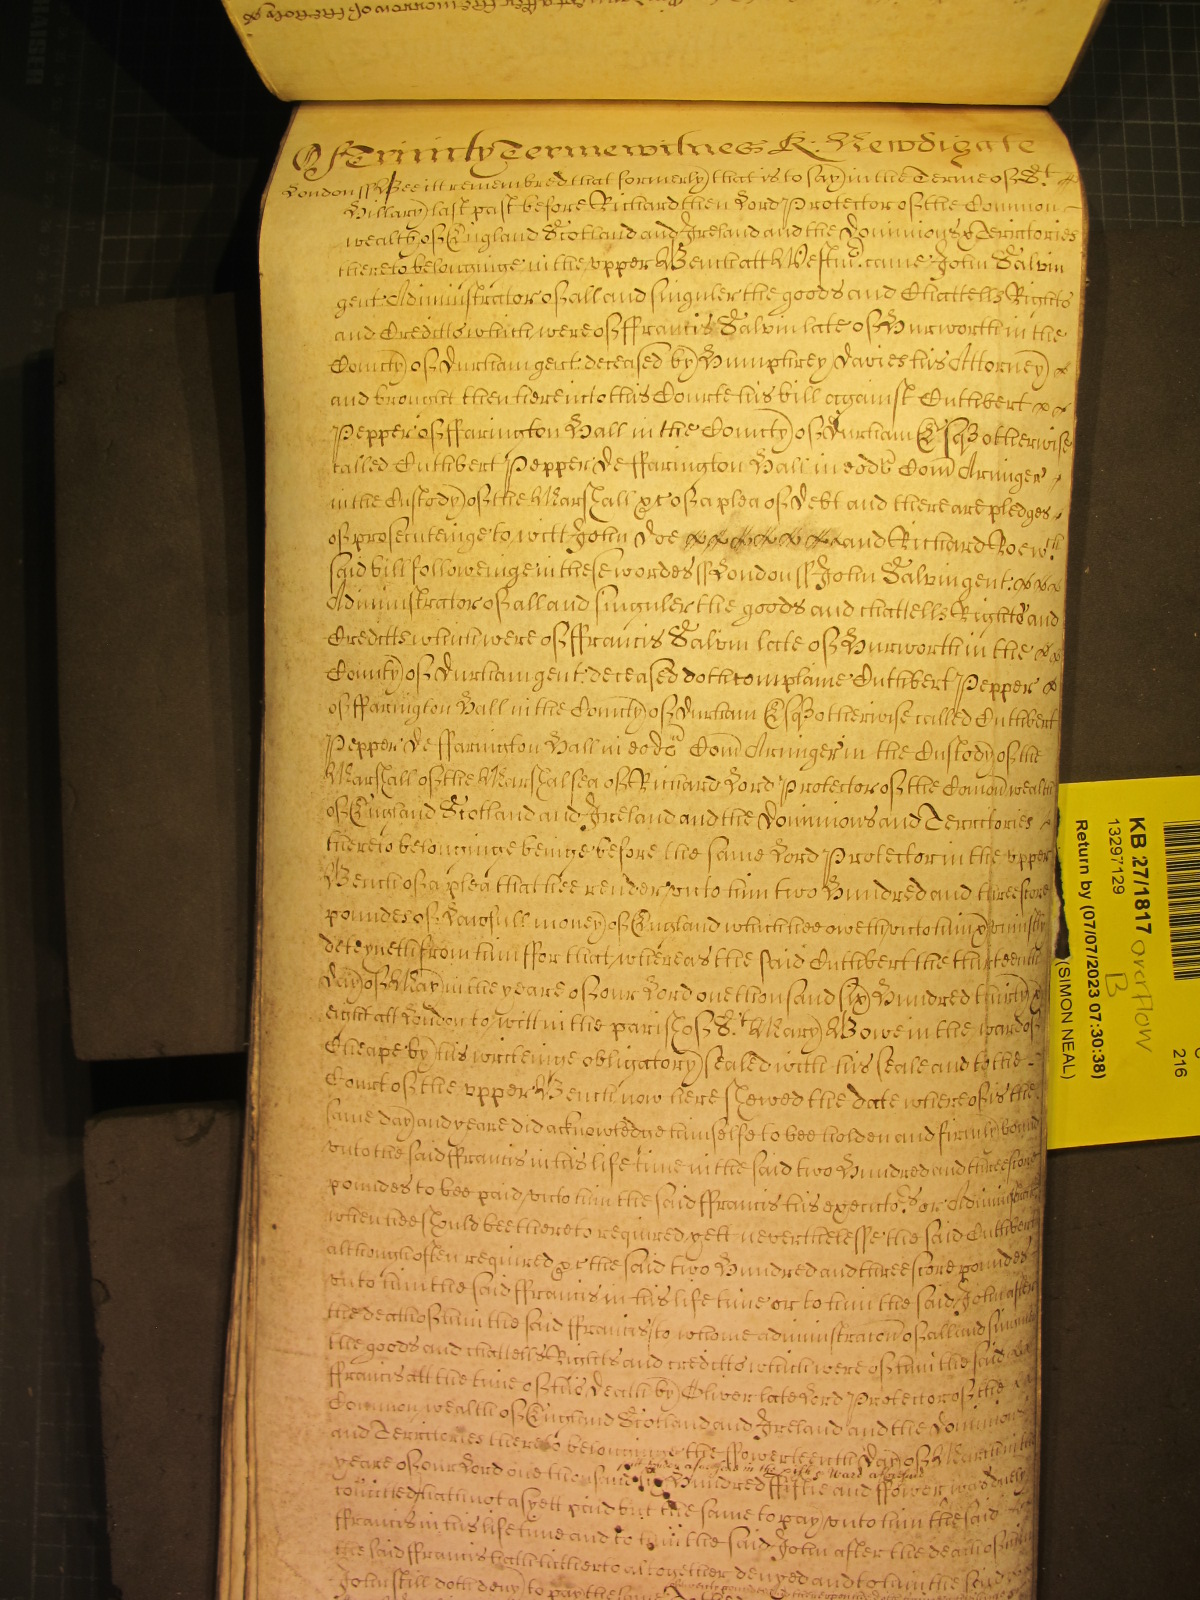 Of Trinity Terme witnes R. Newdigate
London ss Bee itt remembred that formerly that is to say in the Terme of St
Hillary last past before Richard then Lord Protector of the Common
wealth of England Scotland and Ireland and the Dominions & Territories
thereto belonginge in the upper Bench att Westmr. came John Salvin
gent Administrator of all and singuler the goods and Chattells Rights
and Creditts which were of ffrancis Salvin late of Hurworth in the
County of Durham gent. deceased by Humphrey Davies his Attorney
and brought then here into this Courte his bill against Cuthbert
Pepper of ffarington Hall in the County of Durham Esqr otherwise
called Cuthbert Pepper De ffarington Hall in eod Com Armiger
in the Custody of the Marshall &c of a plea of Debt and there are pledges
of prosecuteinge to witt John Doe and Richard Roe wch
said bill followeinge in these wordes ss London ss John Salvin gent:
Administrator of all and singuler the goods and chattells Rights and
Creditts which were of ffrancis Salvin late of Hurworth in the
County of Durham gent. deceased doth complaine Cuthbert Pepper
of ffarington Hall in the County of Durham Esqr otherwise called Cuthbert
Pepper De ffarington Hall in eod Com Armiger in the Custody of the
Marshall of the Marshalsea of Richard Lord Protector of the Comonwealth
of England Scotland and Ireland and the Dominions and Territories
thereto belonginge beinge before the same Lord Protector in the upper
Bench of a plea that hee render unto him two Hundred and threescore
poundes of Lawfull money of England which hee oweth unto him & uniustly
deteyneth from him ffor that, whereas the said Cuthbert the thirteenth
Day of May in the yeare of our Lord one thousand six Hundred thirty &
eight att London to witt in the parish of St. Mary Bowe in the ward of
Cheape by his writeinge obligatory sealed with his seale and to the
Court of the upper Bench now here shewed the date whereof is the
same day and yeare did acknowledge himselfe to bee holden and firmly bound
unto the said ffrancis in his life time in the said two Hundred and threescore
poundes to bee paid unto him the said ffrancis his executors or Administrators
when hee should bee thereto required yett neverthelesse the said Cuthbert
although often required &c the said two Hundred and threescore poundes
unto him the said ffrancis in his life time or to him the said John after
the death of him the said ffrancis to whome administration of all and singuler
the goods and chattells Rights and creditts which were of him the said
ffrancis att the time of his Death by Oliver late Lord Protector of the
Common wealth of England Scotland and Ireland and the Dominions
and Territories thereto belonginge the ffowerteenth Day of March in the
yeare of our Lord one thousand six Hundred ffiftie and ffower was duely
comitted hath not as yett paid but the same to pay unto him the said
ffrancis in his life time and to him the said John after the death of him
the said ffrancis hath hitherto altogether denyed and to him the said
John still doth deny to pay the same
KB 27/1817 overflow
B
13297129
Return by (07/07/2023 07:30:38)
(SIMON NEAL)
216